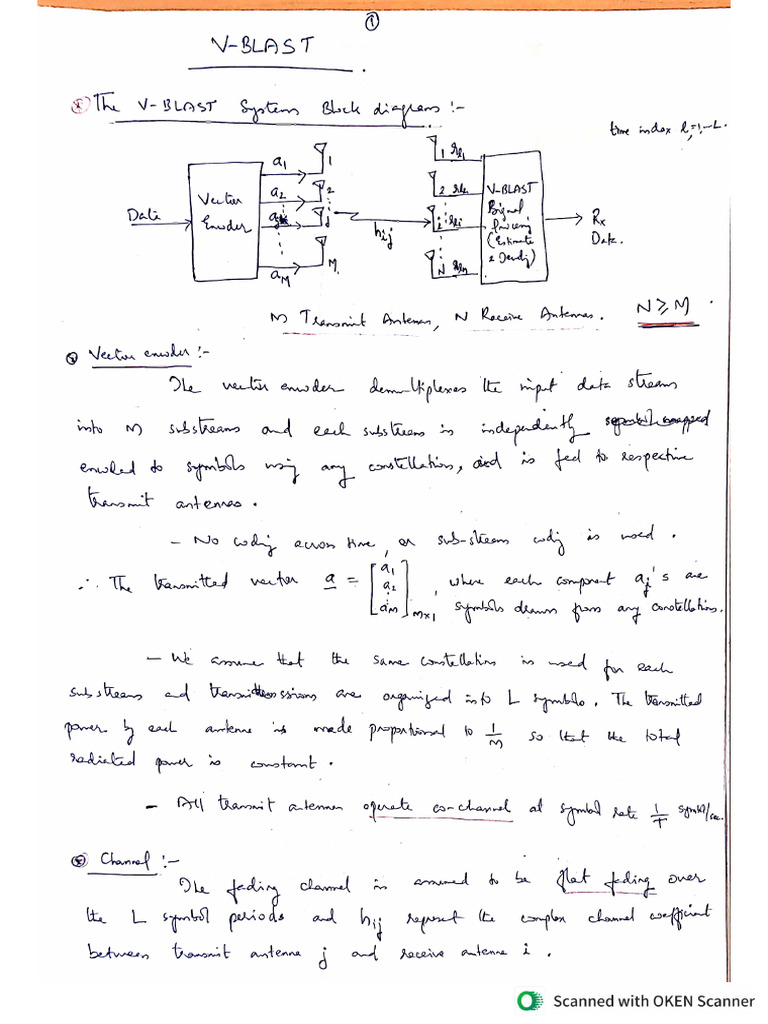 1
V-BLAST
The V-BLAST System Block diagram :-
time index l=1,-L.
Data
Vector
Encoder
a1
a2
aj
aM
1
2
j
M
hij
1
2
i
N
V-BLAST
Signal
Processing
(Estimate
& Decode)
Rx
Data.
M Transmit Antennas, N Receive Antennas. N ≥ M
Vector encoder :-
The vector encoder demultiplexes the input data stream
into M substreams and each substream is independently
encoded to symbols using any constellation, and is fed to respective
transmit antennas.
- No coding across time, or sub-stream coding is used.
∴ The transmitted vector a = [a1 a2 : aM] Mx1, where each component aj's are
symbols drawn from any constellation.
- We assume that the same constellation is used for each
substream and transmissions are organized into L symbols. The transmitted
power by each antenna is made proportional to 1/M so that the total
radiated power is constant.
- All transmit antennas operate co-channel at symbol rate 1/T symbol/sec.
Channel :-
The fading channel is assumed to be flat fading over
the L symbol periods and hij represent the complex channel coefficient
between transmit antenna j and receive antenna i.
Scanned with OKEN Scanner